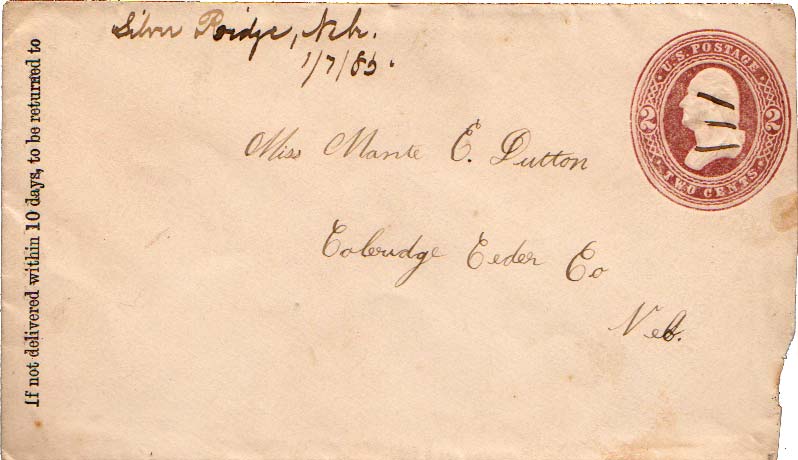 Silver Ridge, Neb.
1/7/85.
U.S. POSTAGE
2 2
TWO CENTS
Miss Mante E. Dutton
Coleridge Ceder Co
Neb.
If not delivered within 10 days, to be returned to